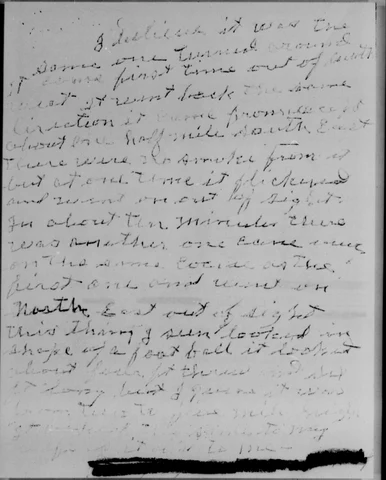 I believe it was the
same one turned around
it came first time out of South
west it went back the same
direction it came from except
about one half mile South East
There were no smoke from it
but at one time it flickered
and went on out of sight
In about ten minutes there
was another one came over
on the same course as the
first one and went on
North East out of sight
this thing I seen looked in
shape of a foot ball it looked
about feet
it long but I guess it was
from five miles
it
it to me